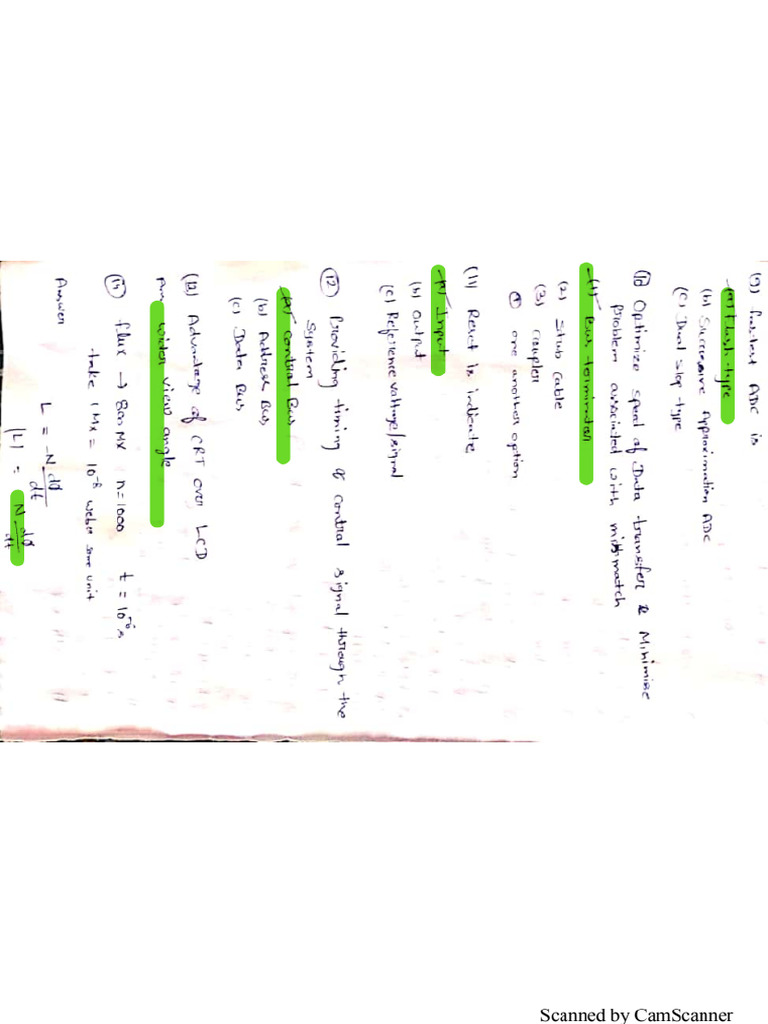 (9) fastest ADC is
(a) flash-type
(b) Successive Approximation ADC
(c) Dual slop-type
(10) Optimize speed of Data transfer & Minimize
problem associated with mismatch
(1) Bus-terminator
(2) Stub Cable
(3) coupler
(4) one another option
(11) Reset is indicate
(a) Input
(b) output
(c) Reference voltage/signal
(12) Providing timing & control signal through the
system
(a) Control Bus
(b) Address Bus
(c) Data Bus
(13) Advantage of CRT over LCD
Ans wider view angle
(14) flux → 800 MX n=1000 t = 10⁻⁶ s
take 1 Mx = 10⁻⁸ weber some unit
Answer L = -N dØ/dt
|L| = N dØ/dt
Scanned by CamScanner